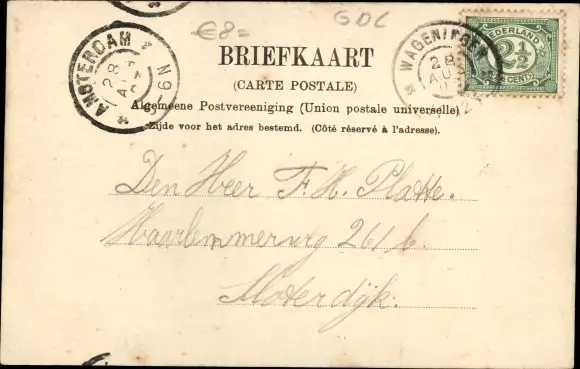 €8= GDL
AMSTERDAM 5-6N
28
WAGENINGEN
28
AU
NEDERLAND
2½
CENT
BRIEFKAART
(CARTE POSTALE)
Algemeene Postvereeniging (Union postale universelle)
Zijde voor het adres bestemd. (Côté réservé à l'adresse).
Den Heer F. H. Platte.
Haarlemmerweg 261 b.
Sloterdijk.